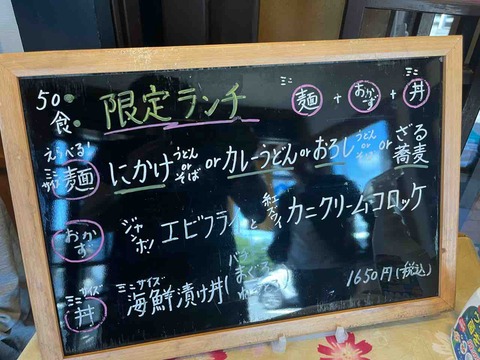 50食 限定ランチ ミニ麺 + おかず + ミニ丼
えらべる!
ミニサイズ 麺 にかけ うどん or そば or カレーうどん or おろし うどん or そば or ざる蕎麦
おかず ジャンボ エビフライ と 紅ズワイ カニクリームコロッケ
ミニサイズ 丼 ミニサイズ 海鮮漬け丼(
まぐろ
1650円(税込)